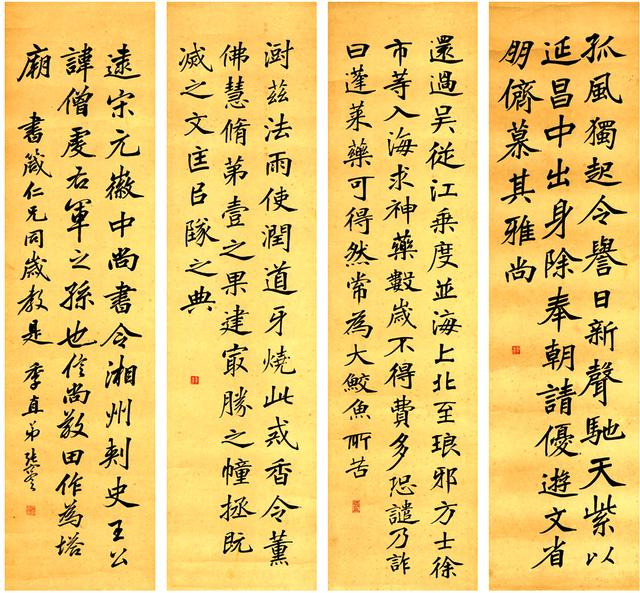 孤風獨起令譽日新聲馳天紫以
延昌中出身除奉朝請優遊文省
朋儕慕其雅尚
還過吳從江乘度並海上北至琅邪方士徐
市等入海求神藥數歲不得費多恐譴乃詐
曰蓬萊藥可得然常為大鮫魚所苦
澍茲法雨使潤道牙燒此戒香令薰
佛慧脩第壹之果建冣勝之幢拯既
滅之文匡已隊之典
遠宋元徽中尚書令湘州刺史王公
諱僧虔右軍之孫也信尚敬田作為塔
廟 書箴仁兄同歲教是 季直弟張謇